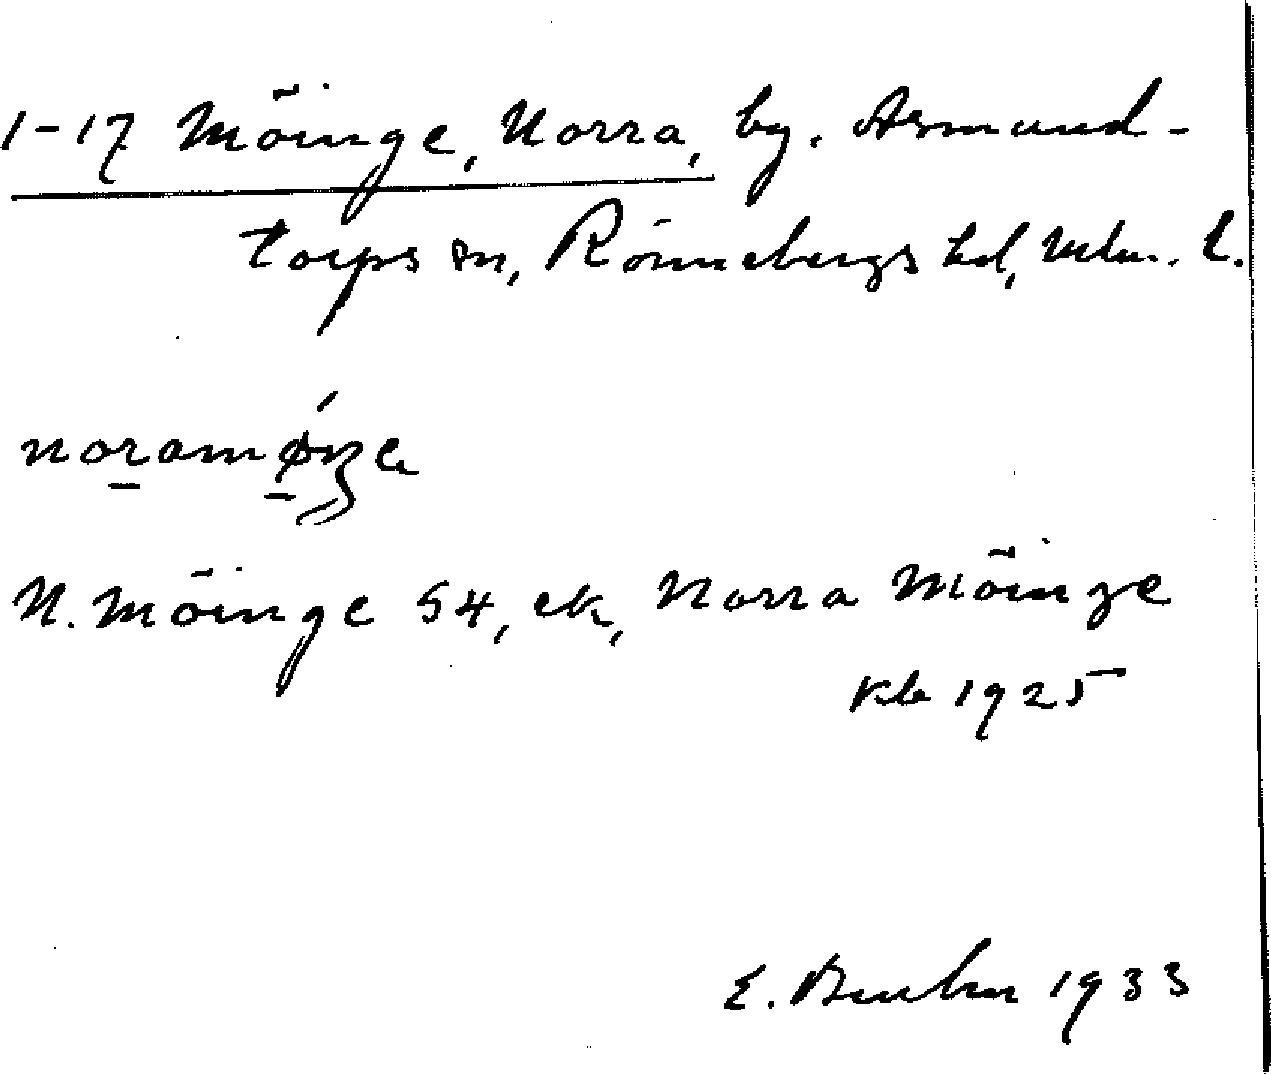 1-17 Möinge, Norra, by. Asmund-
torps sn, Rönnebergs hd, Mlm. l.
noramøŋe
N. Möinge 54, ek, Norra Möinge
Kb 1925
E. 1933